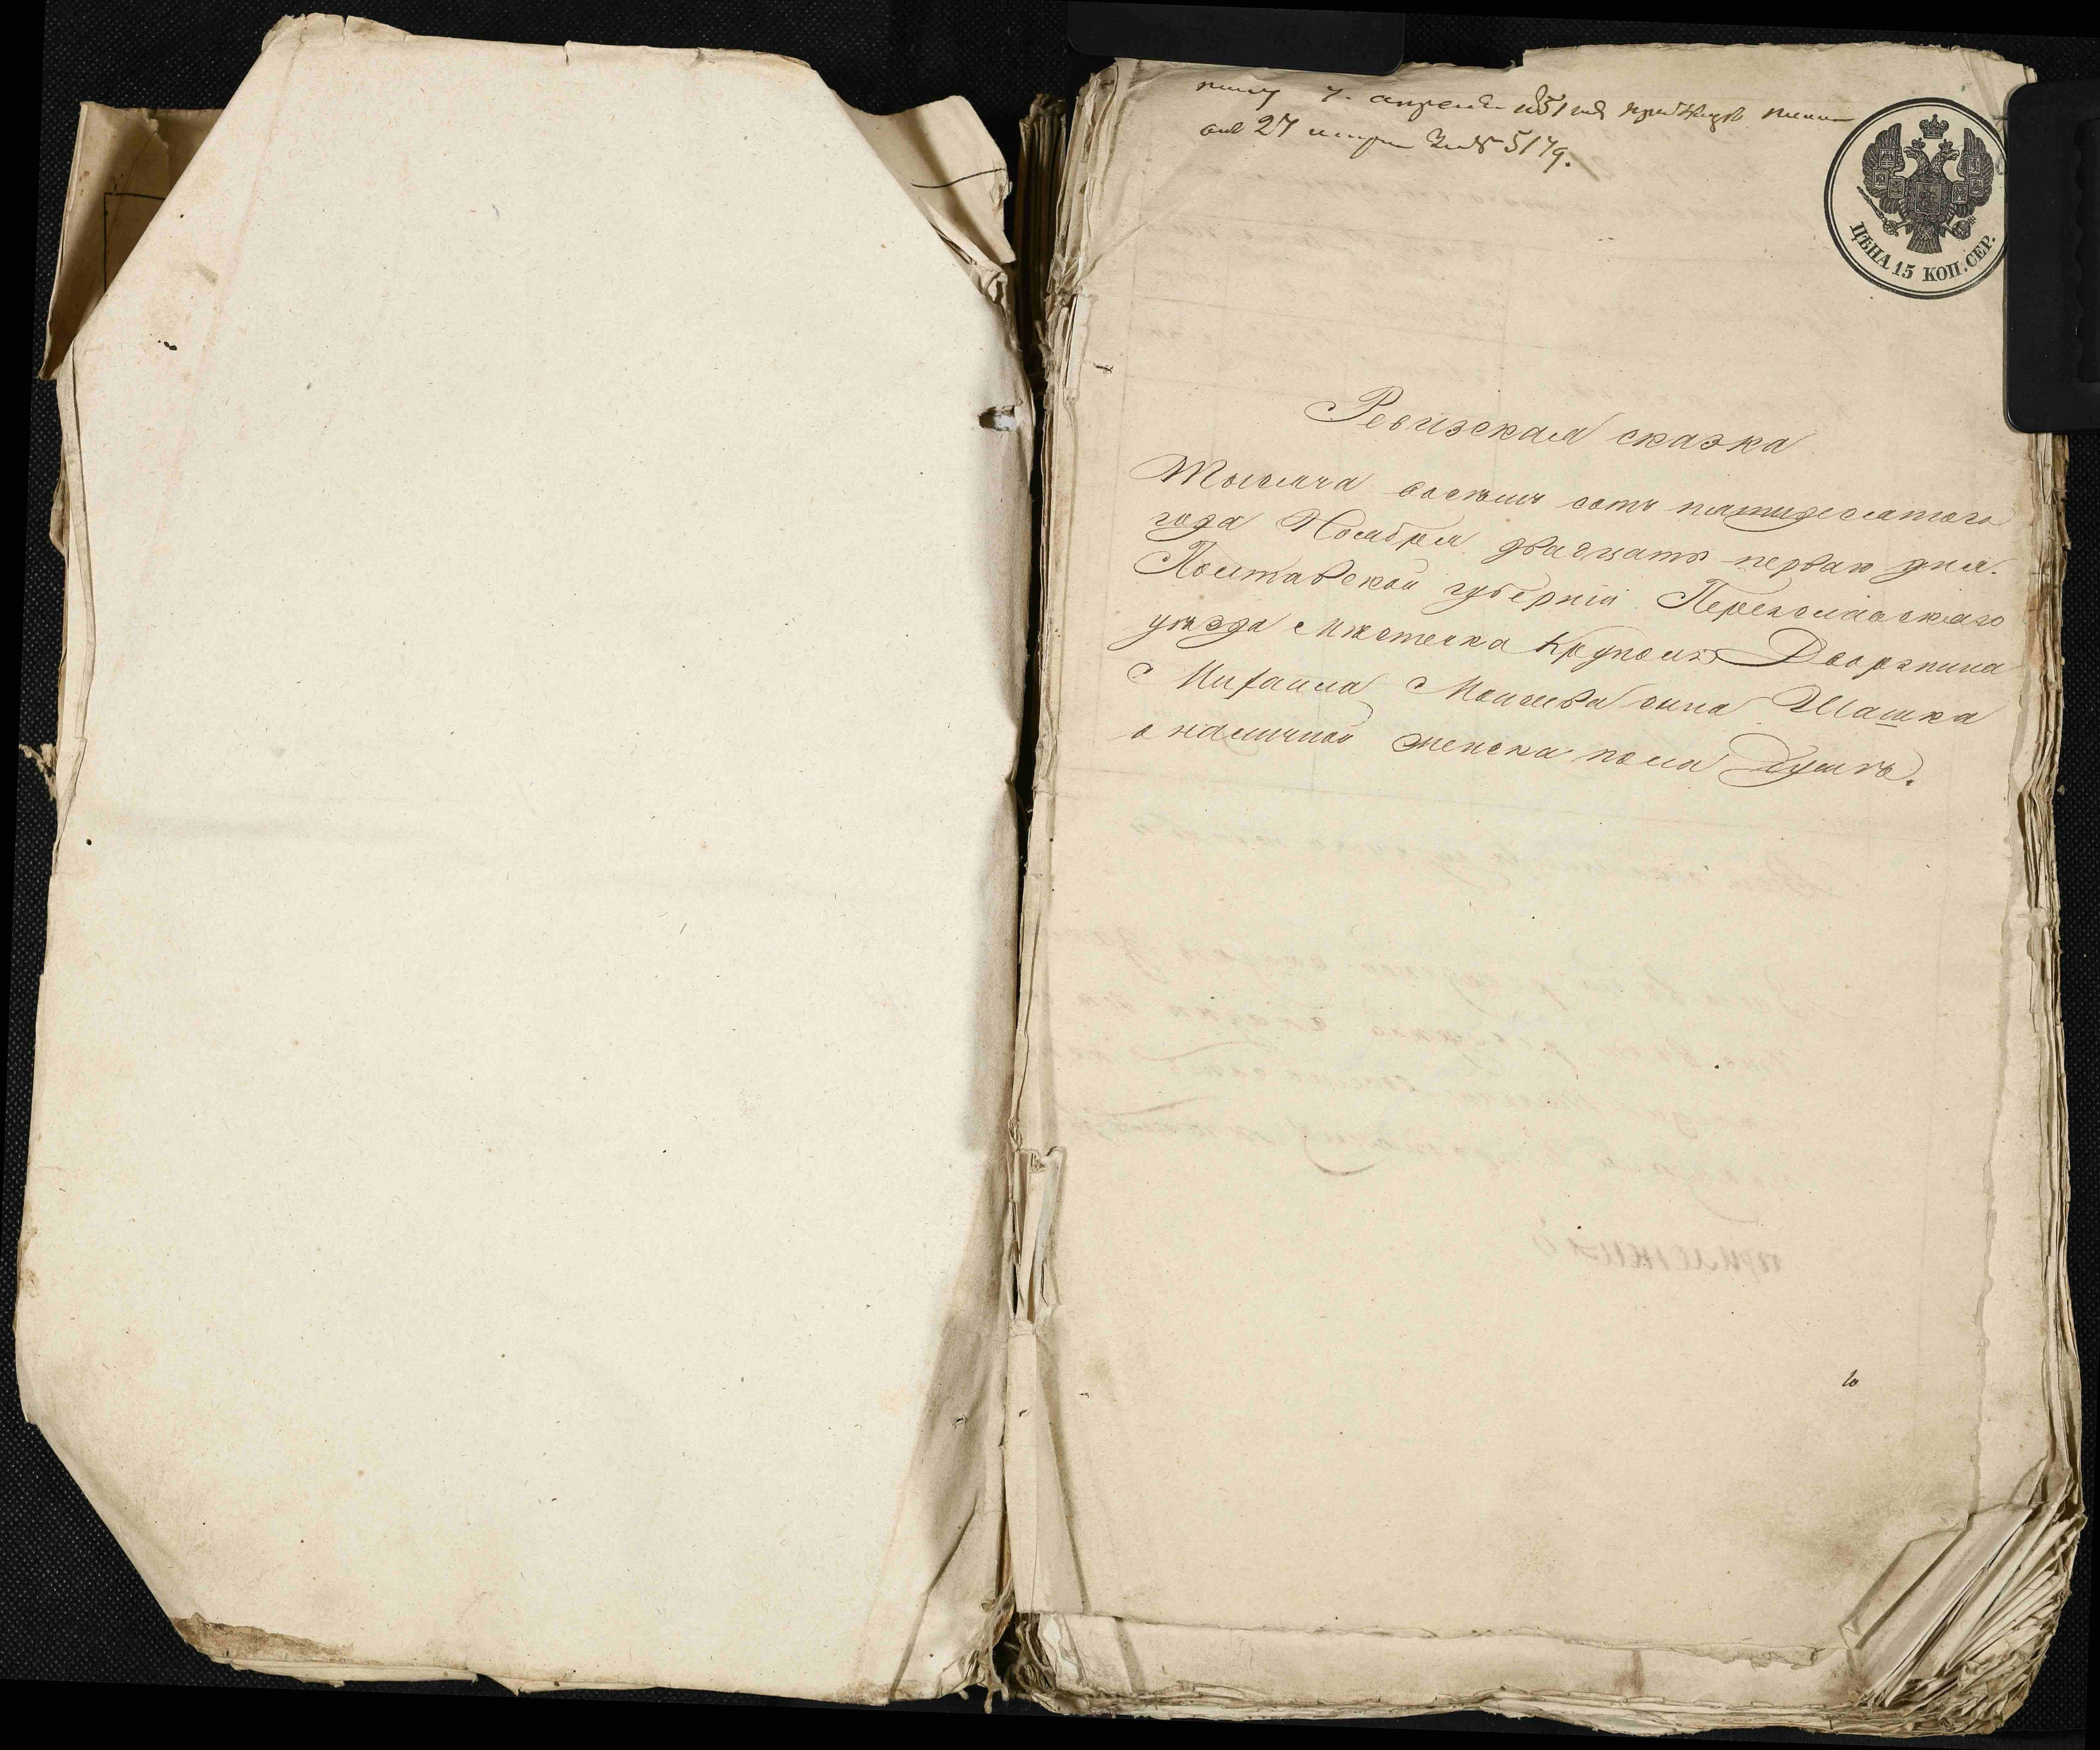 7. апреля 1851 года при
27 марта за № 5179.
ЦѢНА 15 КОП. СЕР.
Ревизская сказка
Тысяча восемь сотъ пятидесятого
года Ноября двадцать первого дня.
Полтавской губерніи Переяславского
уѣзда Мѣстечка Круполь Дворянина
Михаила Моисева сына Шашка
о наличной женска пола душѣ.